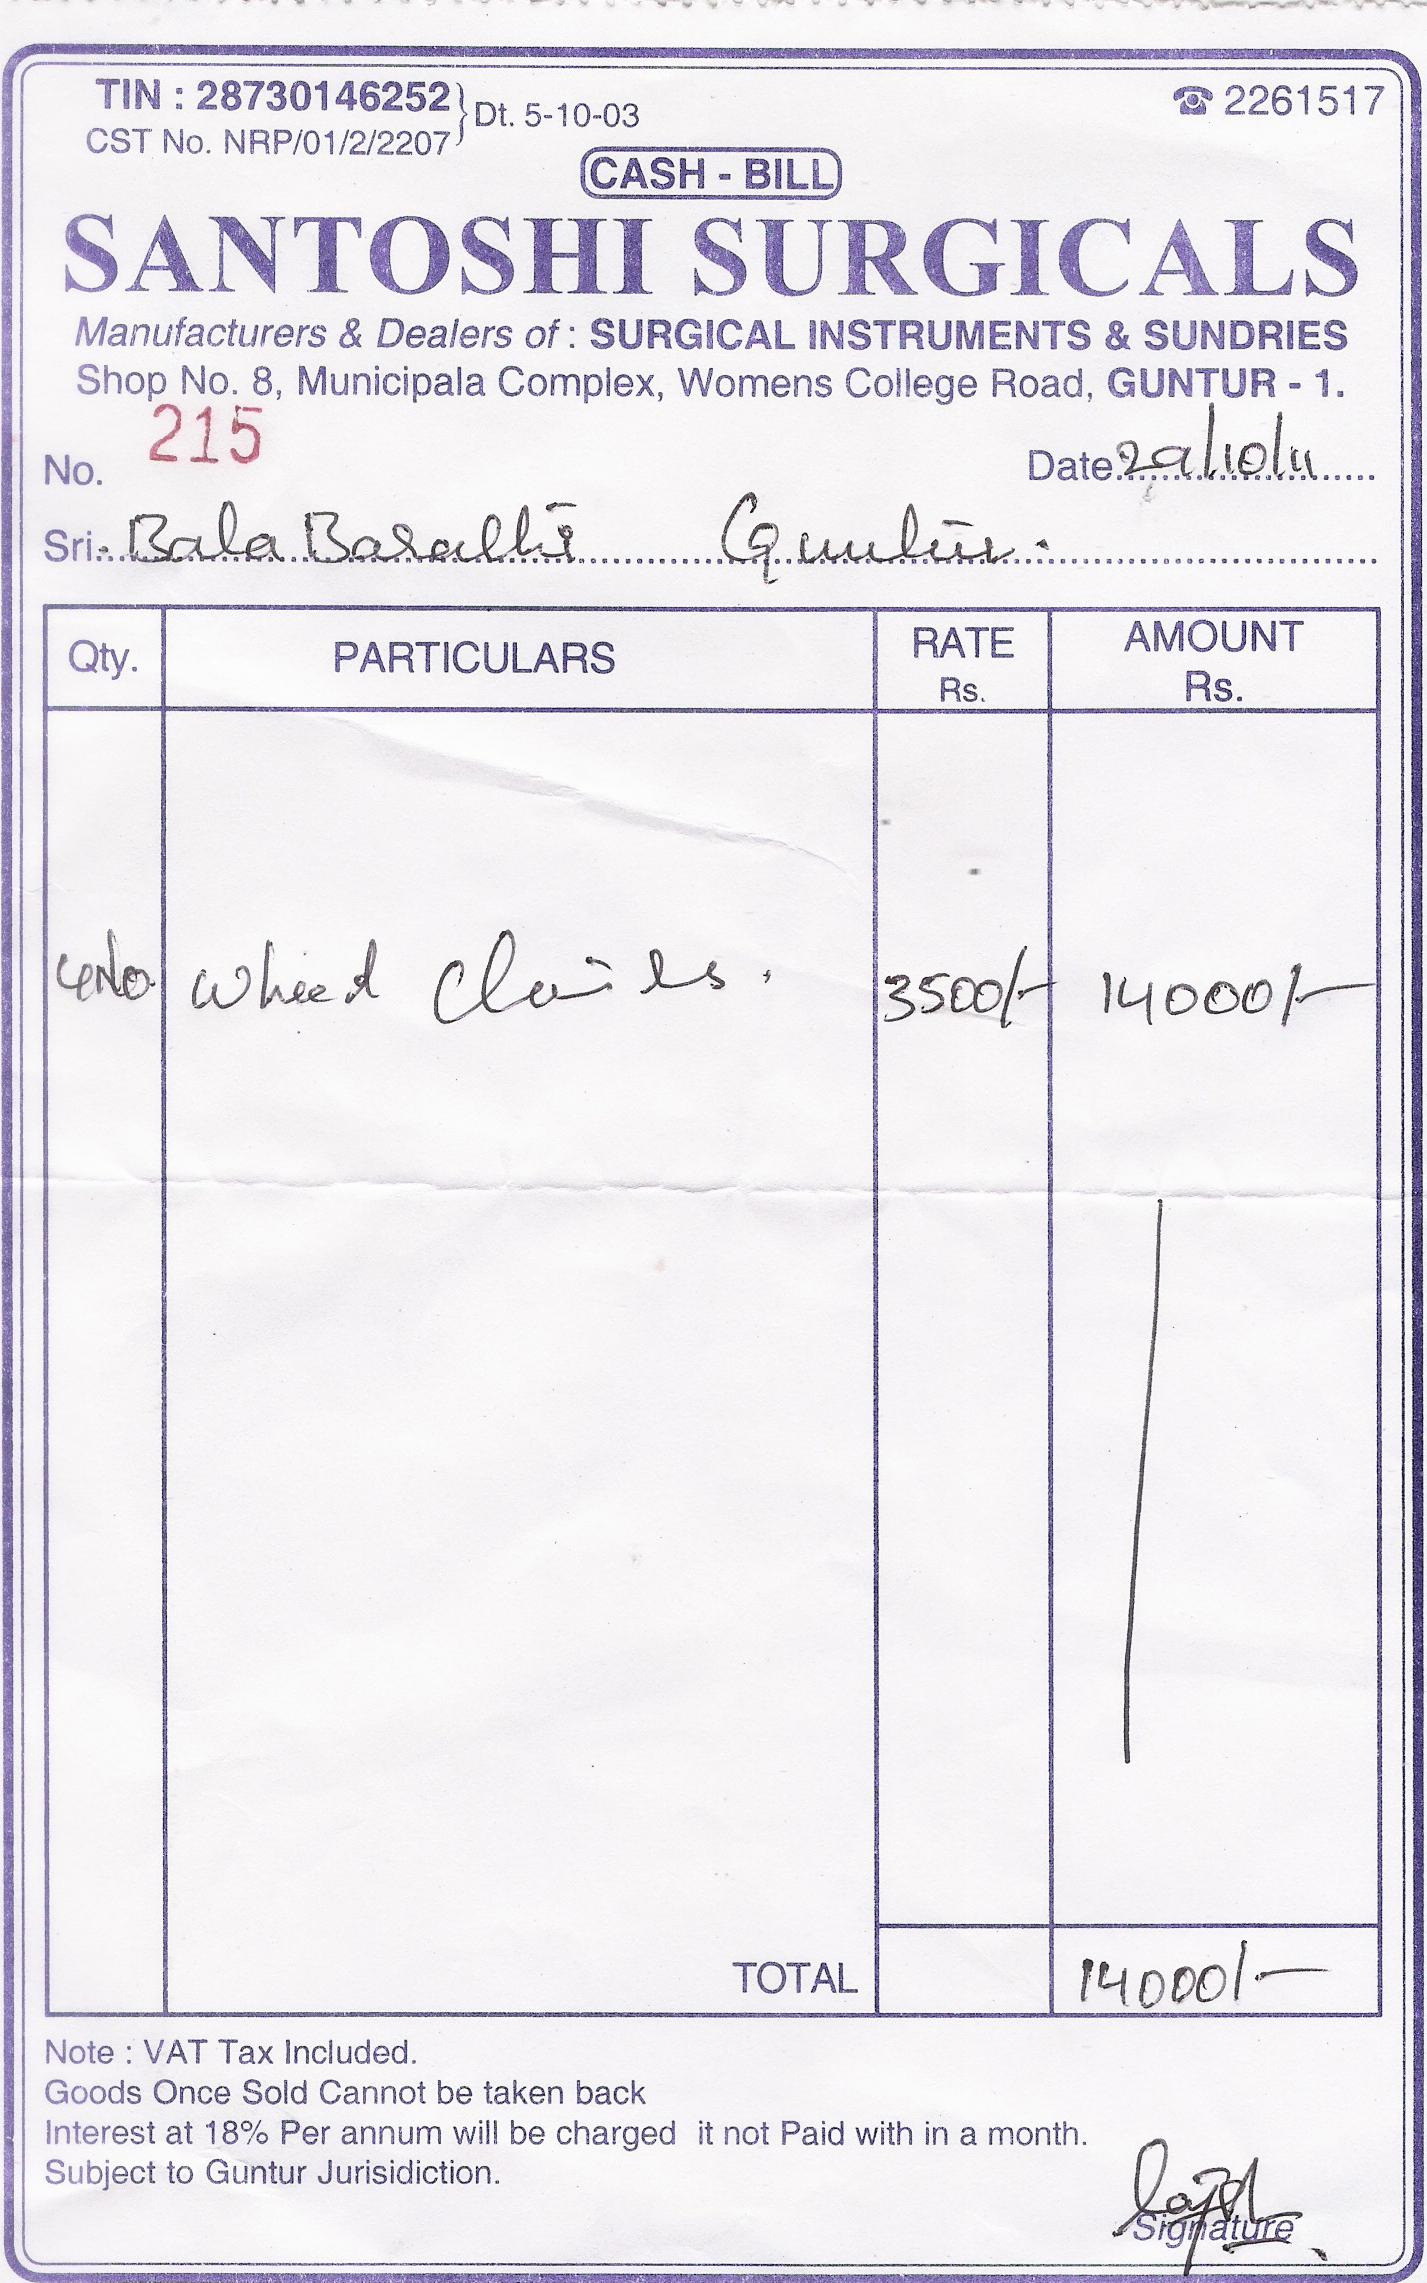 TIN : 28730146252
CST No. NRP/01/2/2207
Dt. 5-10-03
☎ 2261517
CASH - BILL
SANTOSHI SURGICALS
Manufacturers & Dealers of : SURGICAL INSTRUMENTS & SUNDRIES
Shop No. 8, Municipala Complex, Womens College Road, GUNTUR - 1.
No. 215
Date 29/10/11
Sri. Bala Barathi Guntur.
Qty. PARTICULARS RATE Rs. AMOUNT Rs.
4No. Wheel Chairs. 3500/- 14000/-
TOTAL 14000/-
Note : VAT Tax Included.
Goods Once Sold Cannot be taken back
Interest at 18% Per annum will be charged it not Paid with in a month.
Subject to Guntur Jurisidiction.
Signature